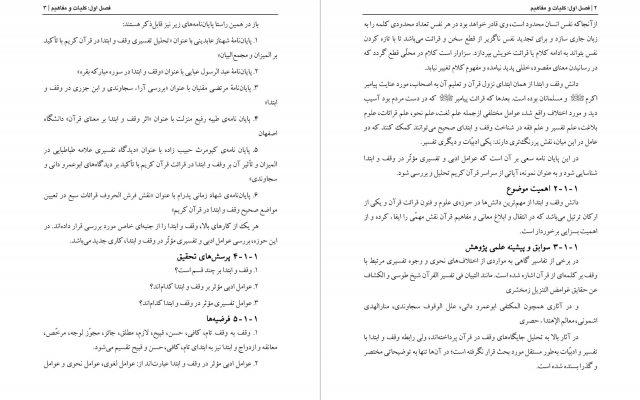 ۲ | فصل اول: کلیات و مفاهیم
ازآنجاکه نفس انسان محدود است، وی قادر خواهد بود در هر نفس تعداد محدودی کلمه را به
زبان جاری سازد و برای تجدید نفس ناگزیر از قطع سخن و قرائت می‌باشد تا با تازه کردن
نفس بتواند به ادامه کلام یا قرائت خویش بپردازد. سزاوار است کلام در محلّی قطع گردد که
در رسانیدن معنای مقصود، خللی پدید نیامده و مفهوم کلام تغییر نیابد.
دانش وقف و ابتدا از همان ابتدای نزول قرآن و تعلیم آن به اصحاب، مورد عنایت پیامبر
اکرم ﷺ و مسلمانان بوده است. بعدها که قرائت پیامبر ﷺ که در دست مردم بود آسیب
دید و مورد اختلاف واقع شد، عوامل مختلفی ازجمله علم لغت، علم نحو، علم قرائات، علوم
بلاغت، علم تفسیر و علم فقه در شناخت وقف و ابتدای صحیح می‌توانند کمک کنند که دو
عامل در این میان، نقش پررنگ‌تری دارند: یکی ادبیّات و دیگری تفسیر.
در این پایان نامه سعی بر آن است که عوامل ادبی و تفسیری مؤثر در وقف و ابتدا
شناسایی شود و به عنوان نمونه، آیاتی از سراسر قرآن کریم تحلیل و بررسی شود.
۱-۱-۲ اهمیت موضوع
دانش وقف و ابتدا از مهم‌ترین دانش‌ها در حوزه‌ی علوم و فنون قرائت قرآن و یکی از
ارکان ترتیل می‌باشد که در انتقال و ابلاغ معانی و مفاهیم قرآن نقش مهمی را ایفا، کرده و از
اهمیت بسزایی برخوردار است.
۱-۱-۳ سوابق و پیشینه علمی پژوهش
در برخی از تفاسیر گاهی به مواردی از اختلاف‌های نحوی و وجوه تفسیری مرتبط با
وقف بر کلمه‌ای از قرآن اشاره شده است. مانند التبیان فی تفسیر القرآن شیخ طوسی و الکشاف
عن حقایق غوامض التنزیل زمخشری
و در آثاری همچون المکتفی ابوعمرو دانی، علل الوقوف سجاوندی، منارالهدی
اشمونی، معالم الإهتدا، حصری
در آثار بالا به تحلیل جایگاه‌های وقف در قرآن پرداخته‌اند، ولی رابطه وقف و ابتدا با
تفسیر و ادبیّات به‌طور مستقل مورد بحث قرار نگرفته است؛ در آن‌ها تنها به توضیحاتی مختصر
و گذرا بسنده شده است.
فصل اول: کلیات و مفاهیم | ۳
باز در همین راستا پایان‌نامه‌های زیر نیز قابل‌ذکر هستند:
۱. پایان‌نامهٔ شهناز عابدینی با عنوان «تحلیل تفسیری وقف و ابتدا در قرآن کریم با تأکید
بر المیزان و مجمع‌البیان»
۲. پایان‌نامهٔ عبد الرسول عبایی با عنوان «وقف و ابتدا در سوره مبارکه بقره»
۳. پایان‌نامهٔ مرتضی مقنیان با عنوان «بررسی آراء سجاوندی و ابن جزری در وقف و
ابتدا»
۴. پایان نامه‌ی طیبه رفیع منزلت با عنوان «اثر وقف و ابتدا بر معنای قرآن» دانشگاه
اصفهان
۵. پایان نامه‌ی کیومرث حبیب زاده با عنوان «دیدگاه تفسیری علامه طباطبایی در
المیزان و تأثیر آن بر وقف و ابتدا در قرائت قرآن کریم با تأکید بر دیدگاه‌های ابوعمرو دانی و
سجاوندی»
۶. پایان‌نامه‌ی شهاد زمانی پدرام با عنوان «نقش فرش الحروف قرائات سبع در تعیین
مواضع صحیح وقف و ابتدا در قرآن کریم»
هر یک از کارهای بالا، وقف و ابتدا را از جنبه‌ای خاص مورد بررسی قرار داده‌اند. در
این حوزه، بررسی عوامل ادبی و تفسیری مؤثّر در وقف و ابتدا، کاری جدید می‌باشد.
۱-۱-۴ پرسش‌های تحقیق
۱. وقف و ابتدا بر چند قسم است؟
۲. عوامل ادبی مؤثر بر وقف و ابتدا کدام‌اند؟
۳. عوامل تفسیری مؤثر در وقف و ابتدا کدام‌اند؟
۱-۱-۵ فرضیه‌ها
۱. وقف به وقف تام، کافی، حسن، قبیح، لازم، مطلق، جائز، مجوّز لوجه، مرخّص،
معانقه و ازدواج و ابتدا نیز به ابتدای تام، کافی، حسن و قبیح تقسیم می‌شود.
۲. عوامل ادبی مؤثر در وقف و ابتدا عبارت‌اند از: عوامل لغوی، عوامل نحوی و عوامل